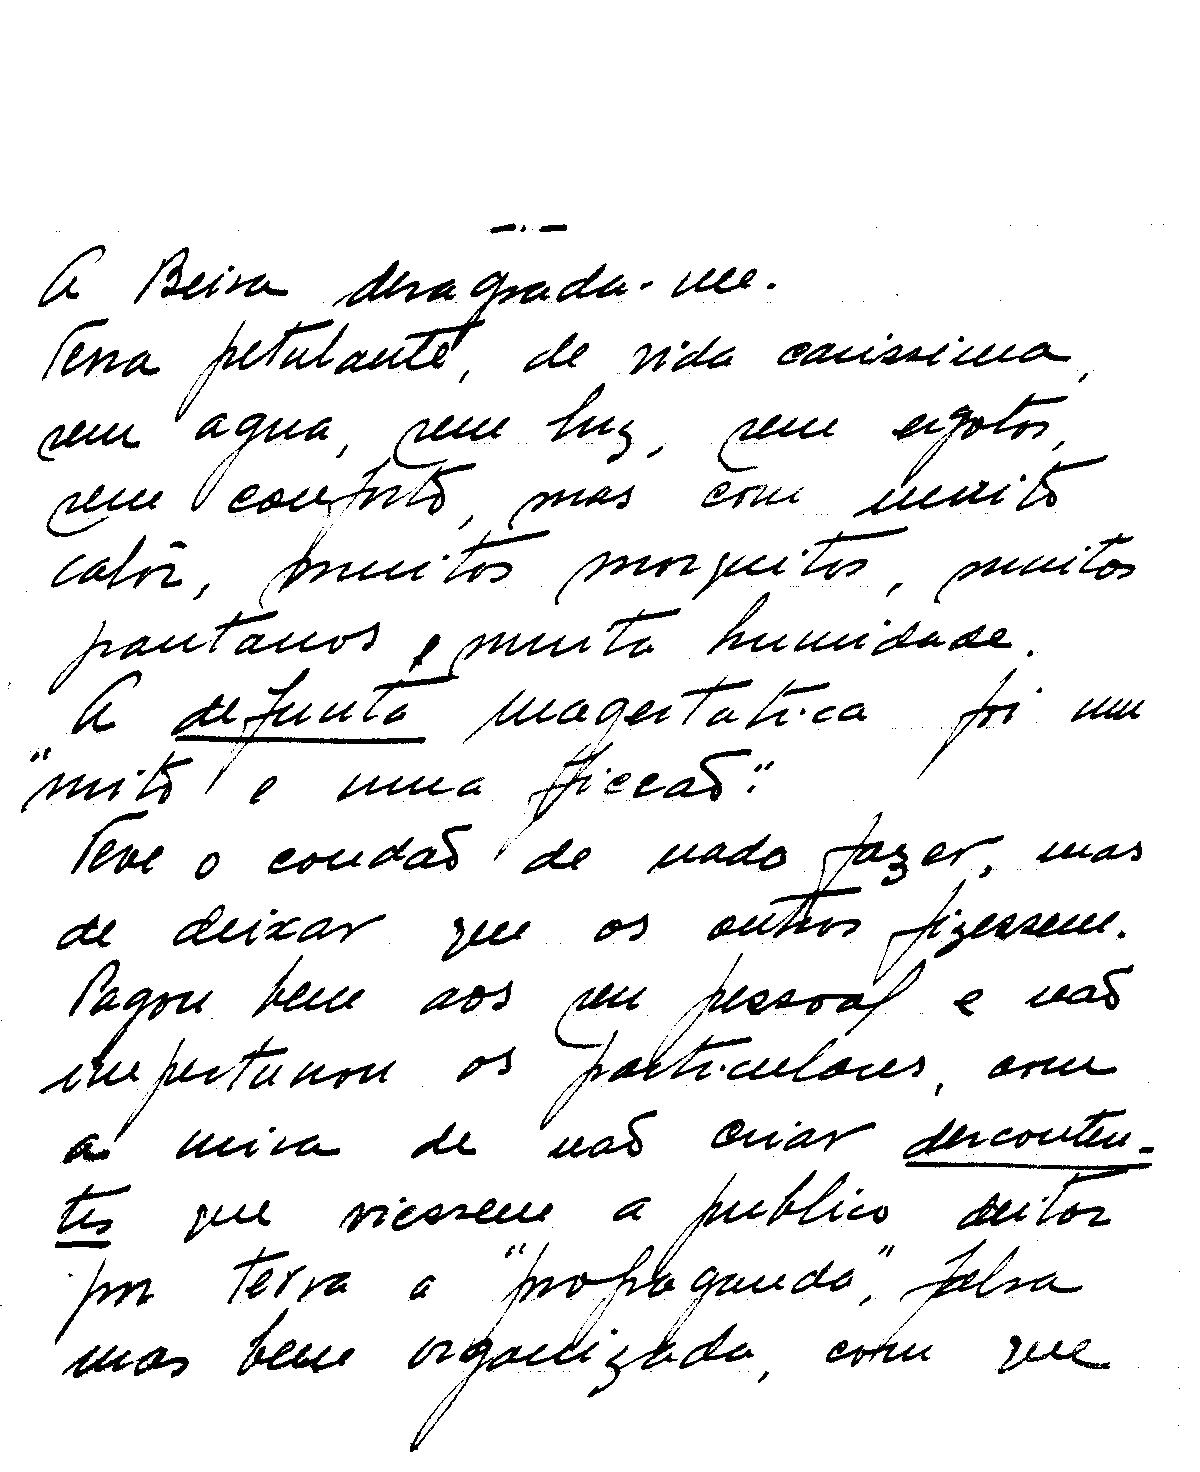 A Beira desagrada-me.
Terra petulante, de vida carissima,
sem agua, sem luz, sem esgotos,
sem conforto, mas com muito
calôr, muitos mosquitos, muitos
pantanos e muita humidade.
A defunta magestatica foi um
"mito e uma ficcaõ".
Teve o condaõ de nada fazer, mas
de deixar que os outros fizessem.
Pagou bem aos seu pessoal e naõ
importunou os particulares, com
a mira de naõ criar desconten-
tes que viessem a publico deitar
por terra a "propaganda", falsa
mas bem organizada, com que